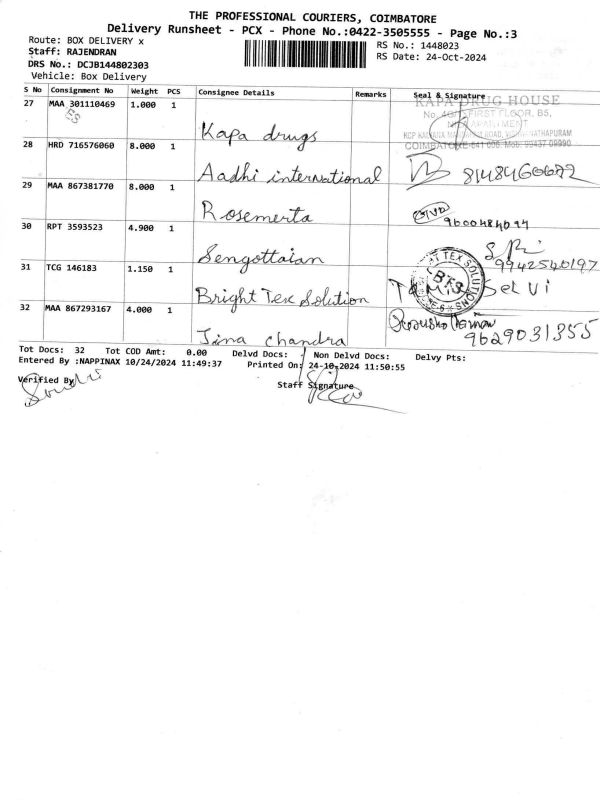 THE PROFESSIONAL COURIERS, COIMBATORE
Delivery Runsheet - PCX - Phone No.:0422-3505555 - Page No.:3
Route: BOX DELIVERY x
RS No.: 1448023
Staff: RAJENDRAN
RS Date: 24-Oct-2024
DRS No.: DCJB144802303
Vehicle: Box Delivery
S No Consignment No Weight PCS Consignee Details Remarks Seal & Signature
27 MAA 301110469 1.000 1
ES
Kapa drugs
KAPA DRUG HOUSE
FIRST FLOOR, B5,
COIMBATORE-641 006.
28 HRD 716576060 8.000 1
Aadhi international
29 MAA 867381770 8.000 1
Rosemerta
9600484094
30 RPT 3593523 4.900 1
Sengottaian
9942540197
31 TCG 146183 1.150 1
Bright Tex Solution
BTS
Selvi
32 MAA 867293167 4.000 1
Jima chandra
9629031355
Tot Docs: 32 Tot COD Amt: 0.00 Delvd Docs: Non Delvd Docs: Delvy Pts:
Entered By :NAPPINAX 10/24/2024 11:49:37 Printed On: 24-10-2024 11:50:55
Verified By
Staff Signature